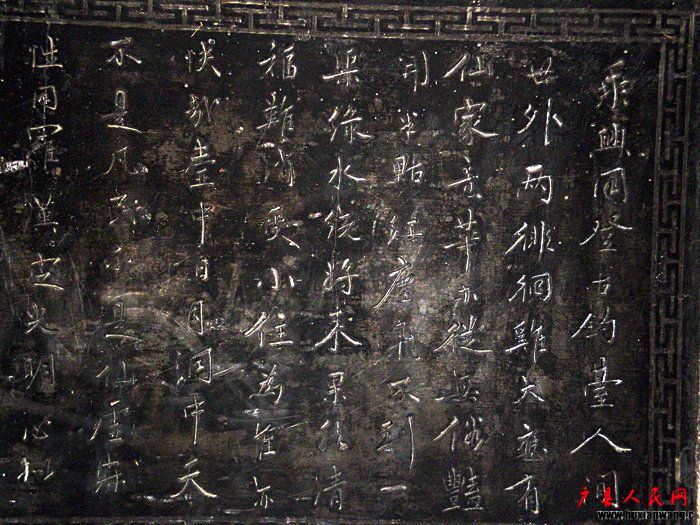 乘興同登古釣臺人間
世外兩徘徊雞犬應有
仙家意草木從無俗豔
開半點紅塵飛不到一
渠綠水繞將來果然清
福難消受小住為佳亦
快哉壺中日月洞中天
不是凡民不是仙虛無
性同羅漢定光明心似
户县人民网
www.huxianwang.c